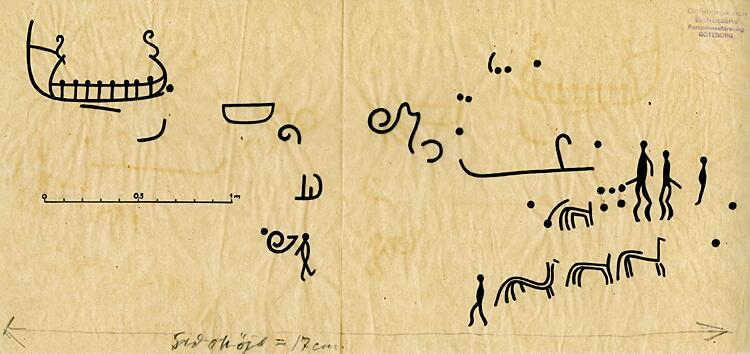 Göteborgs och
Bohusläns
Fornminnesförening
GÖTEBORG
0 0,5 1m
= 17 cm.